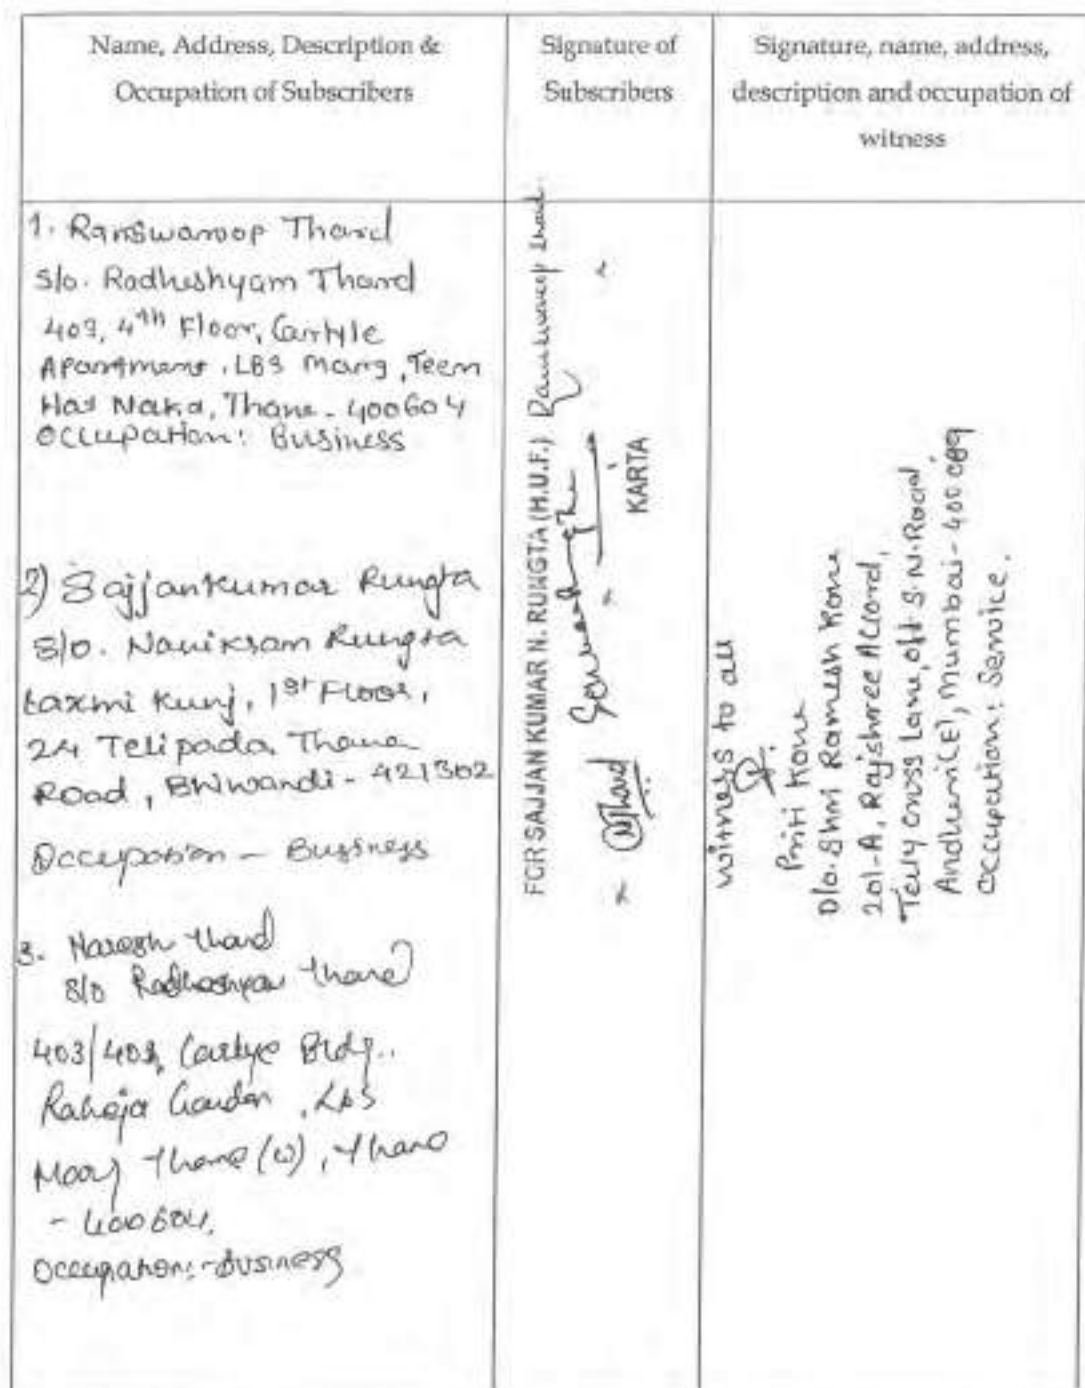 Name, Address, Description &
Occupation of Subscribers
Signature of
Subscribers
Signature, name, address,
description and occupation of
witness
1. Ramswaroop Thard
S/o. Radheshyam Thard
409, 4th Floor, Carlyle
Apartment, LBS Marg, Teen
Hat Naka, Thane - 400604
Occupation: Business
2) Sajjankumar Rungta
S/o. Rungta
Laxmi Kunj, 1st Floor,
24 Telipada, Thane
Road, Bhiwandi - 421302
Occupation - Business
3. Naresh Thard
S/o Radheshyam Thard
403/409, Bldg.,
Raheja Garden, LBS
Marg Thane (W), Thane
- 400604.
Occupation:- Business
Ramswaroop Thard
FOR SAJJAN KUMAR N. RUNGTA (H.U.F.)
KARTA
NThard
witness to all
Priti Kone
D/o. Shri Ramesh Kone
201-A, Rajshree Accord,
Telly cross Lane, off S.N. Road
Andheri(E), Mumbai - 400 069
Occupation: Service.